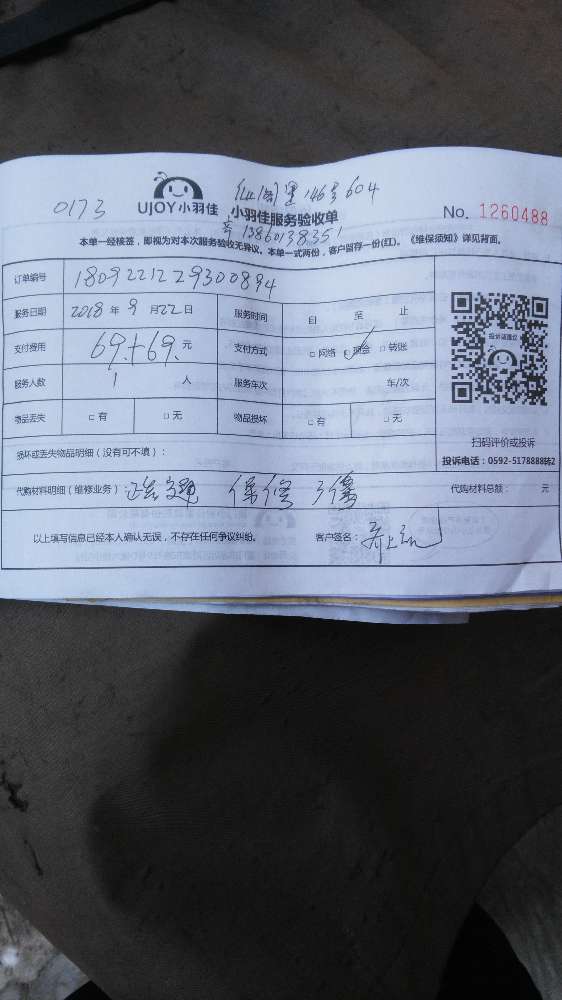 0173
UJOY小羽佳
146号604
小羽佳服务验收单
No. 1260488
13860138351
本单一经核签，即视为对本次服务验收无异议。本单一式两份，客户留存一份(红)。《维保须知》详见背面。
订单编号 1809221229300894
服务日期 2018 年 9 月 22 日 服务时间 自 至 止
支付费用 69.+69. 元 支付方式 □网络 □现金 □转账
服务人数 1 人 服务车次 车/次
物品丢失 □有 □无 物品损坏 □有 □无
投诉或建议
扫码评价或投诉
投诉电话：0592-5178888转2
损坏或丢失物品明细（没有可不填）：
代购材料明细（维修业务）： 保修 代购材料总额： 元
以上填写信息已经本人确认无误，不存在任何争议纠纷。 客户签名：